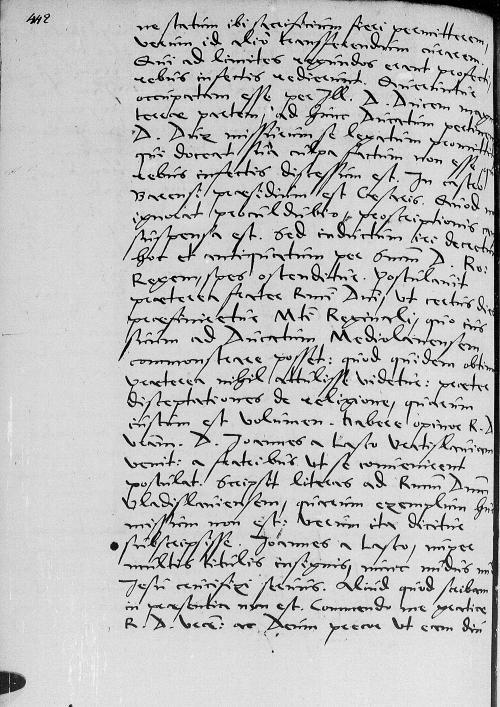 442
ne statum ibi sacrificium fieri permitterem,
verum id alio transferendum curarem.
Qui ad limites regundos erant profecti
rebus infectis redierunt. Queruntur
occupatam esse per Ill. D. Ducem magnam
terrae partem, ad hunc Ducatum pertinen
D. Dux missurum se legatum promittit
qui doceat, sua culpa factum non esse, q
rebus infectis discessum est. In castro
Barensi praesidium est Caesaris. Quod ne
ignorat proculdubio, proscriptionis
suspensa est. Sed inductum iri decretum
hoc et antiquatum per Smum D. Ro:
Regem, spes ostenditur. Postulavit
praeterea frater Rmi Dni, ut certus dies
praefiniretur Mti Reginali, quo ius
suum ad Ducatum Mediolanensem
commonstrare posset: quod quidem obtin
Praeterea nihil attulisse videtur: praeter
disceptationes de religione, quarum
iustum est volumen. Habere opinor R. D.
Vram. D. Joannes a Lasco Vratislaviam
venit: a fratribus ut se convenirent
postulat. Scripsit literas ad Rmum Dnum
Vladislaviensem, quarum exemplum huc
missum non est: verum ita dicitur
subscripsisse. Joannes a Lasco, nuper
multis titulis insignis, nunc nudus nu
Jesu crucifixi servus. Aliud quod scribam
in praesentia non est. Commendo me gratiae
R. D. Vrae: ac Deum precor ut eam diu